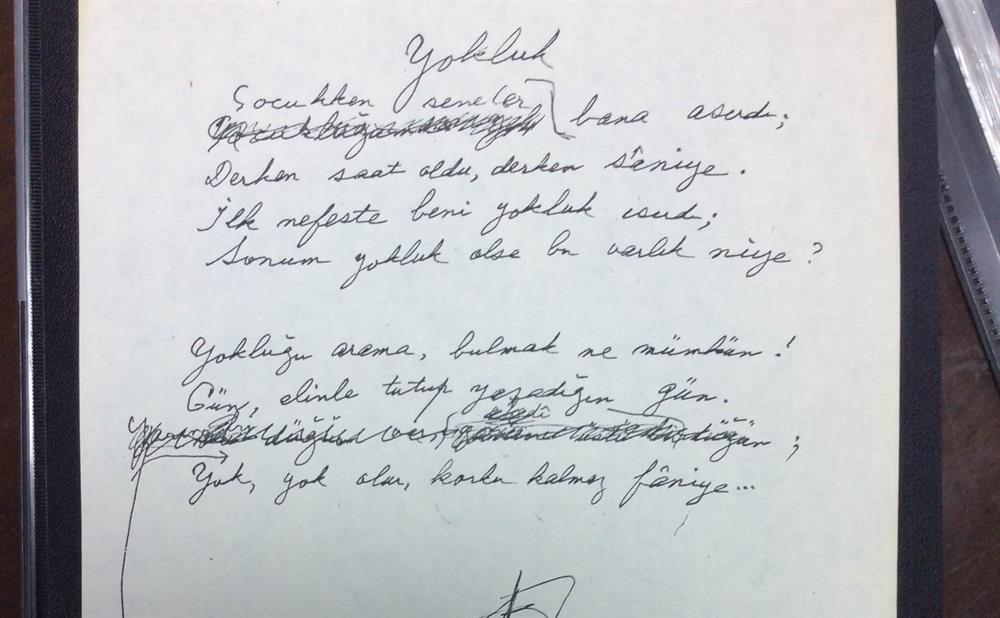 Yokluk
Çocukken seneler bana asırdı;
Derken saat oldu, derken sêniye.
İlk nefeste beni yokluk ısırdı;
Sonum yokluk olsa bu varlık niye?
Yokluğu arama, bulmak ne mümkün!
Gün, elinle tutup yaşadığın gün.
Yok, yok olur, korku kalmaz fâniye...